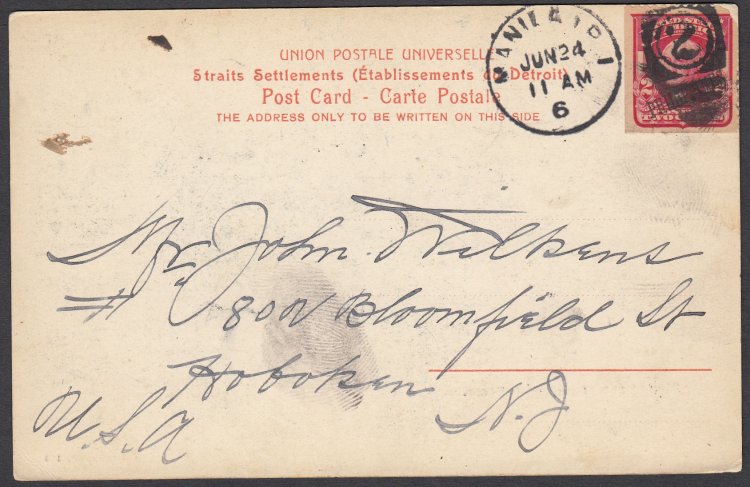 UNION POSTALE UNIVERSELLE
Straits Settlements (Établissements du Detroit)
Post Card - Carte Postale
THE ADDRESS ONLY TO BE WRITTEN ON THIS SIDE
MANILA, P. I.
JUN 24
11 AM
6
2
Mr. John Wilkens
# 802 Bloomfield St
Hoboken
N.J
U.S.A